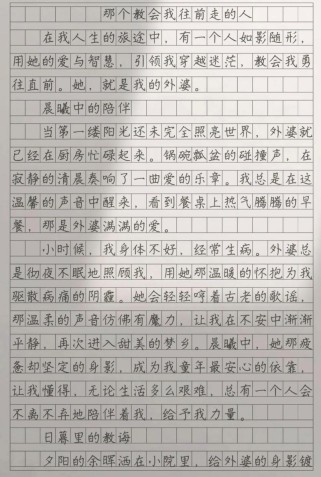 那个教会我往前走的人
在我人生的旅途中，有一个人如影随形，
用她的爱与智慧，引领我穿越迷茫，教会我勇
往直前。她，就是我的外婆。
晨曦中的陪伴
当第一缕阳光还未完全照亮世界，外婆就
已经在厨房忙碌起来。锅碗瓢盆的碰撞声，在
寂静的清晨奏响了一曲爱的乐章。我总是在这
温馨的声音中醒来，看到餐桌上热气腾腾的早
餐，那是外婆满满的爱。
小时候，我身体不好，经常生病。外婆总
是彻夜不眠地照顾我，用她那温暖的怀抱为我
驱散病痛的阴霾。她会轻轻哼着古老的歌谣，
那温柔的声音仿佛有魔力，让我在不安中渐渐
平静，再次进入甜美的梦乡。晨曦中，她那疲
惫却坚定的身影，成为我童年最安心的依靠，
让我懂得，无论生活多么艰难，总有一个人会
不离不弃地陪伴着我，给予我力量。
日暮里的教诲
夕阳的余晖洒在小院里，给外婆的身影镀